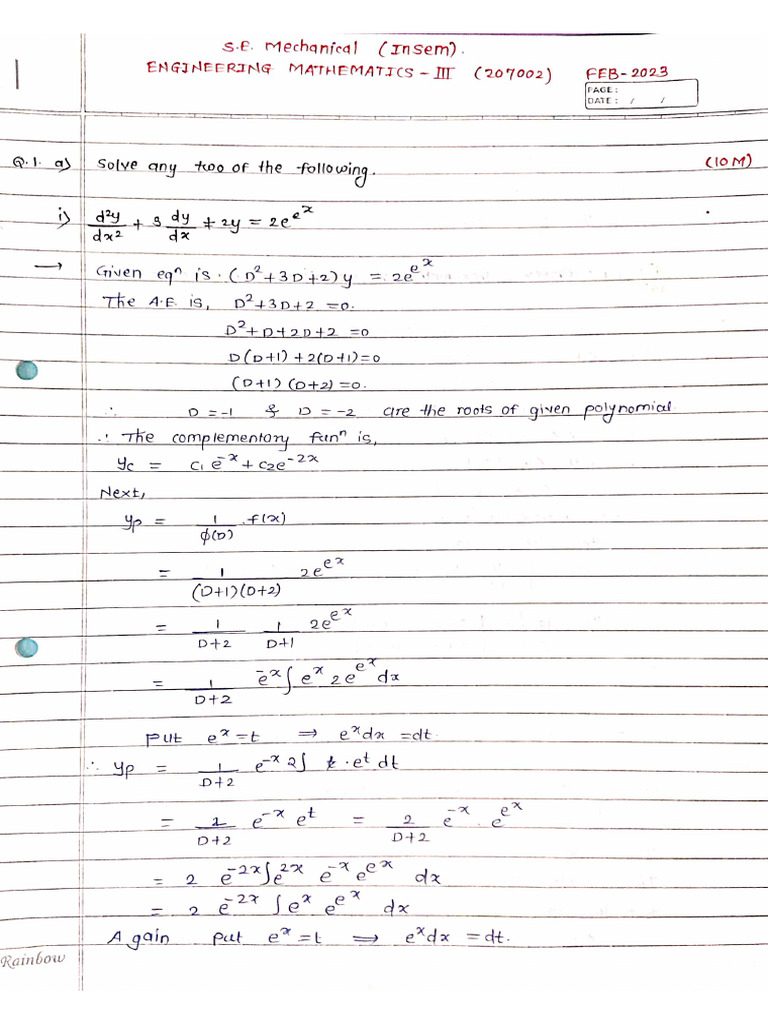 S.E. Mechanical (Insem).
ENGINEERING MATHEMATICS - III (207002) FEB-2023
PAGE:
DATE: / /
Q.1. a) Solve any two of the following. (10M)
i) d²y/dx² + 3 dy/dx + 2y = 2e^e^x
→ Given eqⁿ is. (D²+3D+2)y = 2e^e^x
The A.E. is, D²+3D+2 = 0.
D²+D+2D+2 = 0
D(D+1)+2(D+1)=0
(D+1)(D+2)=0.
∴ D = -1 & D = -2 are the roots of given polynomial.
∴ The complementary funⁿ is,
yc = c₁e^-x + c₂e^-2x
Next,
yp = 1/ϕ(D) . f(x)
= 1/((D+1)(D+2)) 2e^e^x
= 1/(D+2) 1/(D+1) 2e^e^x
= 1/(D+2) e^-x ∫ e^x 2e^e^x dx
Put e^x = t ⟹ e^x dx = dt.
∴ yp = 1/(D+2) e^-x 2∫ . e^t dt
= 2/(D+2) e^-x e^t = 2/(D+2) e^-x . e^e^x
= 2 e^-2x ∫ e^2x e^-x e^e^x dx
= 2 e^-2x ∫ e^x e^e^x dx
Again put e^x = t ⟹ e^x dx = dt.
Rainbow